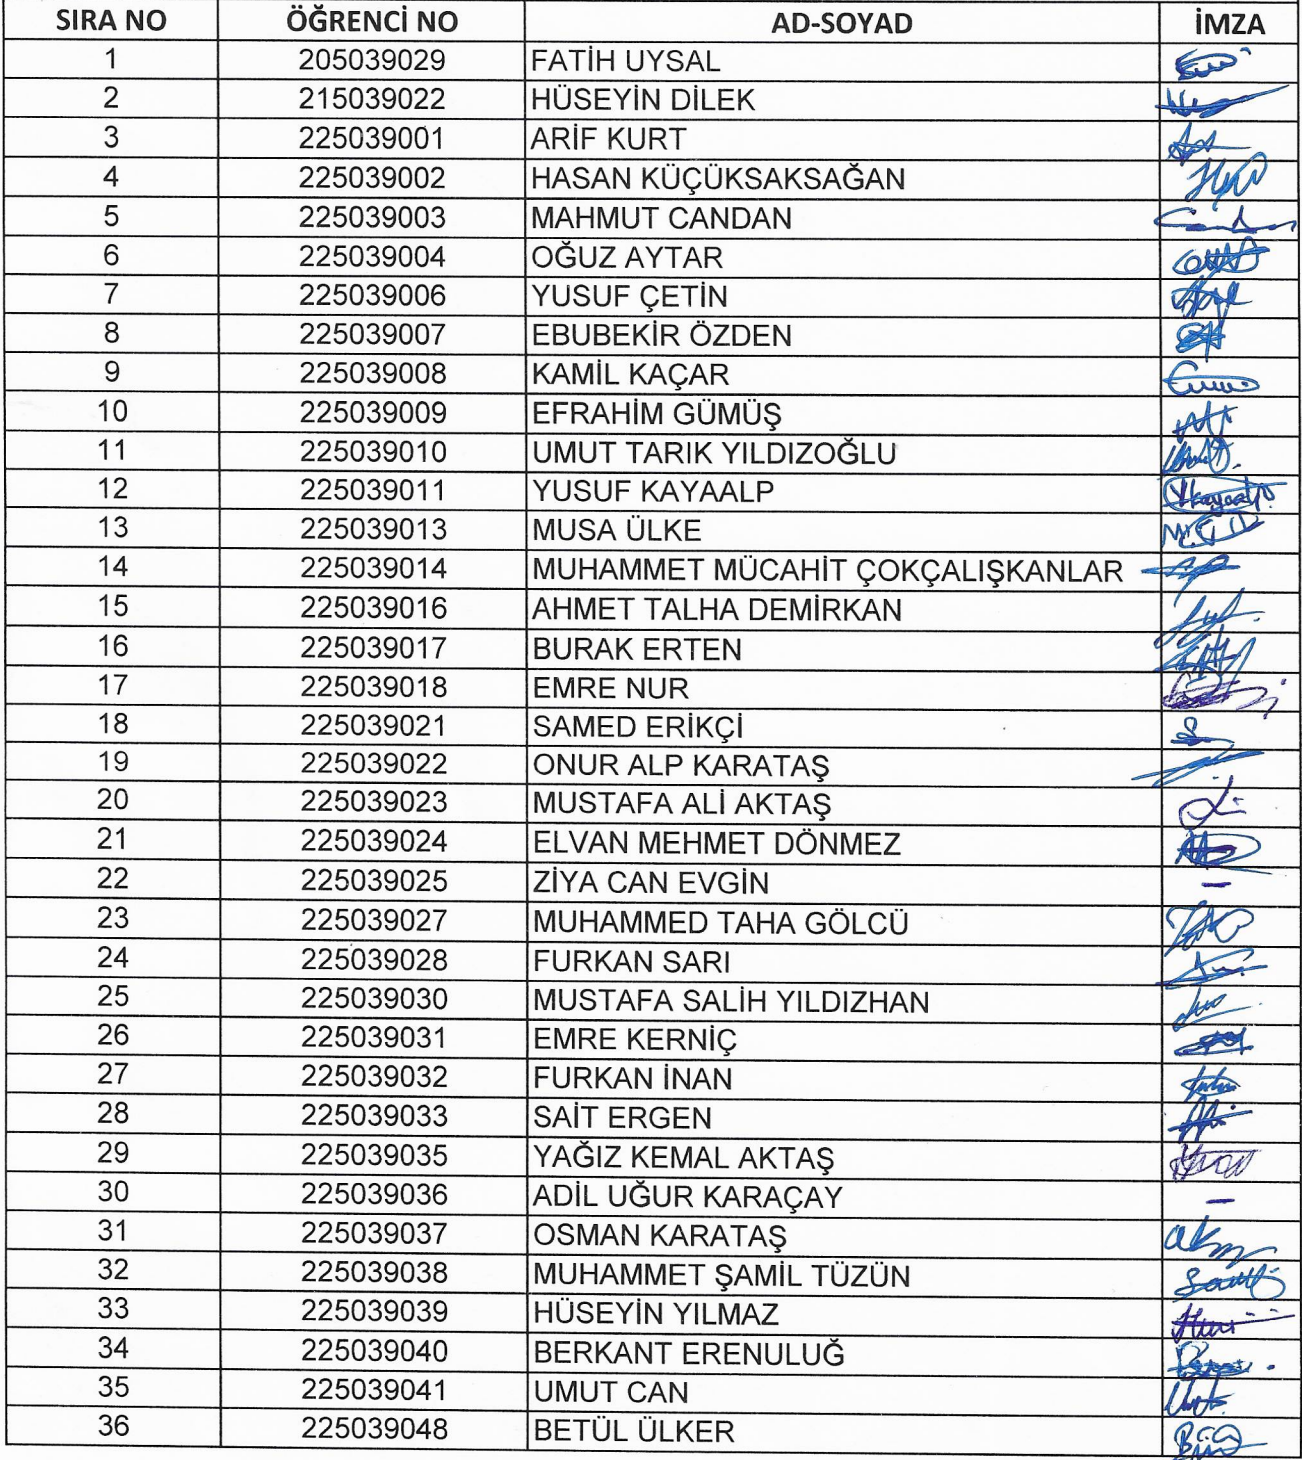 SIRA NO ÖĞRENCİ NO AD-SOYAD İMZA
1 205039029 FATİH UYSAL
2 215039022 HÜSEYİN DİLEK
3 225039001 ARİF KURT
4 225039002 HASAN KÜÇÜKSAKSAĞAN
5 225039003 MAHMUT CANDAN
6 225039004 OĞUZ AYTAR
7 225039006 YUSUF ÇETİN
8 225039007 EBUBEKİR ÖZDEN
9 225039008 KAMİL KAÇAR
10 225039009 EFRAHİM GÜMÜŞ
11 225039010 UMUT TARIK YILDIZOĞLU
12 225039011 YUSUF KAYAALP
13 225039013 MUSA ÜLKE
14 225039014 MUHAMMET MÜCAHİT ÇOKÇALIŞKANLAR
15 225039016 AHMET TALHA DEMİRKAN
16 225039017 BURAK ERTEN
17 225039018 EMRE NUR
18 225039021 SAMED ERİKÇİ
19 225039022 ONUR ALP KARATAŞ
20 225039023 MUSTAFA ALİ AKTAŞ
21 225039024 ELVAN MEHMET DÖNMEZ
22 225039025 ZİYA CAN EVGİN –
23 225039027 MUHAMMED TAHA GÖLCÜ
24 225039028 FURKAN SARI
25 225039030 MUSTAFA SALİH YILDIZHAN
26 225039031 EMRE KERNİÇ
27 225039032 FURKAN İNAN
28 225039033 SAİT ERGEN
29 225039035 YAĞIZ KEMAL AKTAŞ
30 225039036 ADİL UĞUR KARAÇAY –
31 225039037 OSMAN KARATAŞ
32 225039038 MUHAMMET ŞAMİL TÜZÜN
33 225039039 HÜSEYİN YILMAZ
34 225039040 BERKANT ERENULUĞ
35 225039041 UMUT CAN
36 225039048 BETÜL ÜLKER